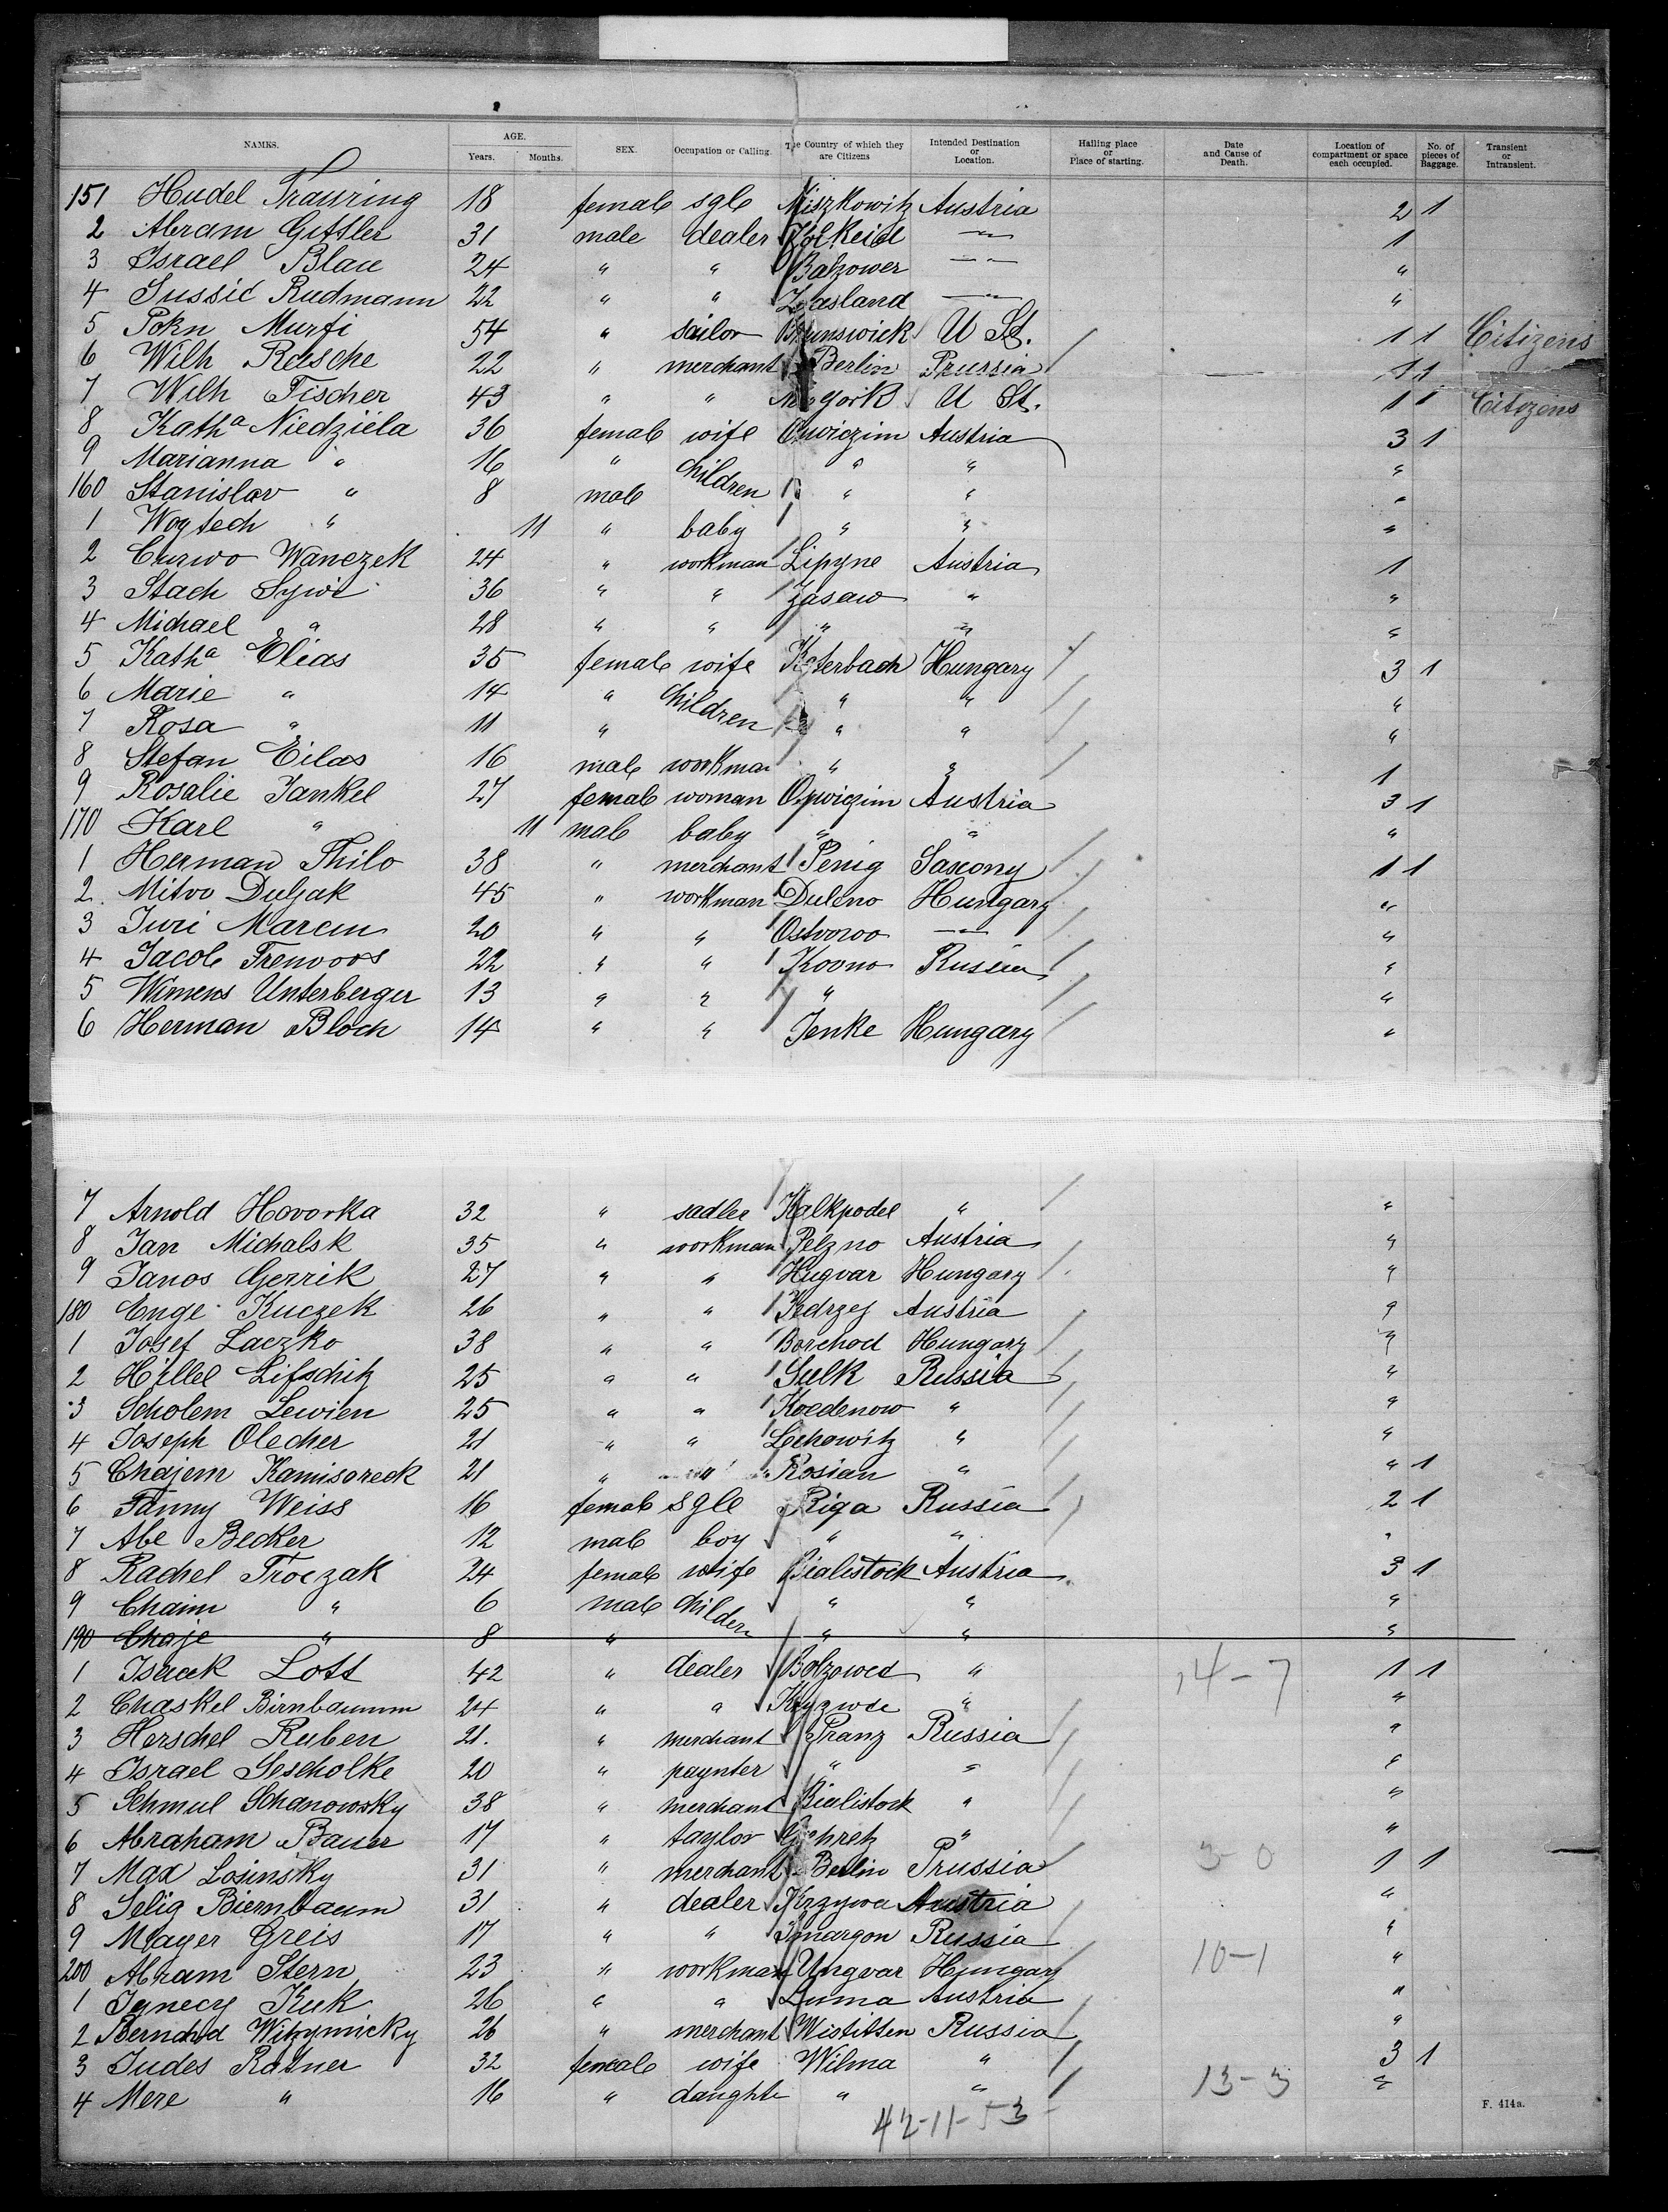 NAMES. AGE. Years. Months. SEX. Occupation or Calling. The Country of which they are Citizens Intended Destination or Location. Hailing place or Place of starting. Date and Cause of Death. Location of compartment or space each occupied. No. of pieces of Baggage. Transient or Intransient.
151 Hudel Trauring 18 female sgle Niszkowitz Austria 2 1
2 Abram Gettler 31 male dealer — " — 1
3 Israel Blau 24 " " Balzower — " — "
4 Jussic Rudmann 22 " " Zasland — " — "
5 Pokn Murfi 54 " sailor Brunswick U St. 1 1 Citizens
6 Wilh Resche 22 " merchant Berlin Prussia 1 1
7 Wilh Fischer 43 " " N. York U St. 1 1 Citizens
8 Katha Niedziela 36 female wife Oswiezim Austria 3 1
9 Marianna " 16 " children " " "
160 Stanislav " 8 male " " "
1 Woytech " 11 " baby " " "
2 Curwo Wanczek 24 " workman Lipyne Austria 1
3 Stach Sywi 36 " " Zasaw " "
4 Michael " 28 " " " " "
5 Katha Elias 35 female wife Koterbach Hungary 3 1
6 Marie " 14 " children " " "
7 Rosa " 11 " " " "
8 Stefan Eilas 16 male workman " " 1
9 Rosalie Jankel 27 female woman Oswiezim Austria 3 1
170 Karl " 11 male baby " " "
1 Herman Thilo 38 " merchant Penig Saxony 1 1
2 Mitro Duljak 45 " workman Duleno Hungary "
3 Juri Marcin 20 " " Ostvoroo — " — "
4 Jacob Trenwoos 22 " " Kovno Russia "
5 Wimens Unterberger 13 " " " "
6 Herman Bloch 14 " " Jenke Hungary "
7 Arnold Hovorka 32 " sadler Kalkpodel " "
8 Jan Michalsk 35 " workman Pelzno Austria "
9 Janos Gerrik 27 " " Hugvar Hungary "
180 Enge Kuczek 26 " " Kedrzej Austria "
1 Josef Laczko 38 " " Borchod Hungary "
2 Hillel Lifschitz 25 " " Sulk Russia "
3 Scholem Lewien 25 " " Koedenow " "
4 Joseph Olecher 21 " " Lechowitz " "
5 Chajem Kamisoreck 21 " " Rosian " " 1
6 Fanny Weiss 16 female sgle Riga Russia 2 1
7 Abe Becker 12 male boy " " "
8 Rachel Troczak 24 female wife Bialistock Austria 3 1
9 Chaim " 6 male children " " "
190 Chaje " 8 " " " "
1 Isaack Lott 42 " dealer Bolzowed " 14-7 1 1
2 Chaskel Birnbaumm 24 " " Kryzwce " "
3 Herschel Ruben 21. " merchant Pranz Russia "
4 Israel Sescholke 20 " paynter " " "
5 Schmul Schanowsky 38 " merchant Bialistock " "
6 Abraham Bauer 17 " taylor " "
7 Max Losinsky 31 " merchant Berlin Prussia 3-0 1 1
8 Selig Biernbaum 31 " dealer Krzywce Austria "
9 Mayer Greis 17 " " Smargon Russia "
200 Abram Stern 23 " workman Ungvar Hungary 10-1 "
1 Ignecy Kuk 26 " " Duma Austria "
2 Bernahd Witzynicky 26 " merchant Wistitten Russia "
3 Judes Ratner 32 female wife Wilna " 3 1
4 Mere " 16 " daughte " " 13-3 "
42-11-53
F. 414a.